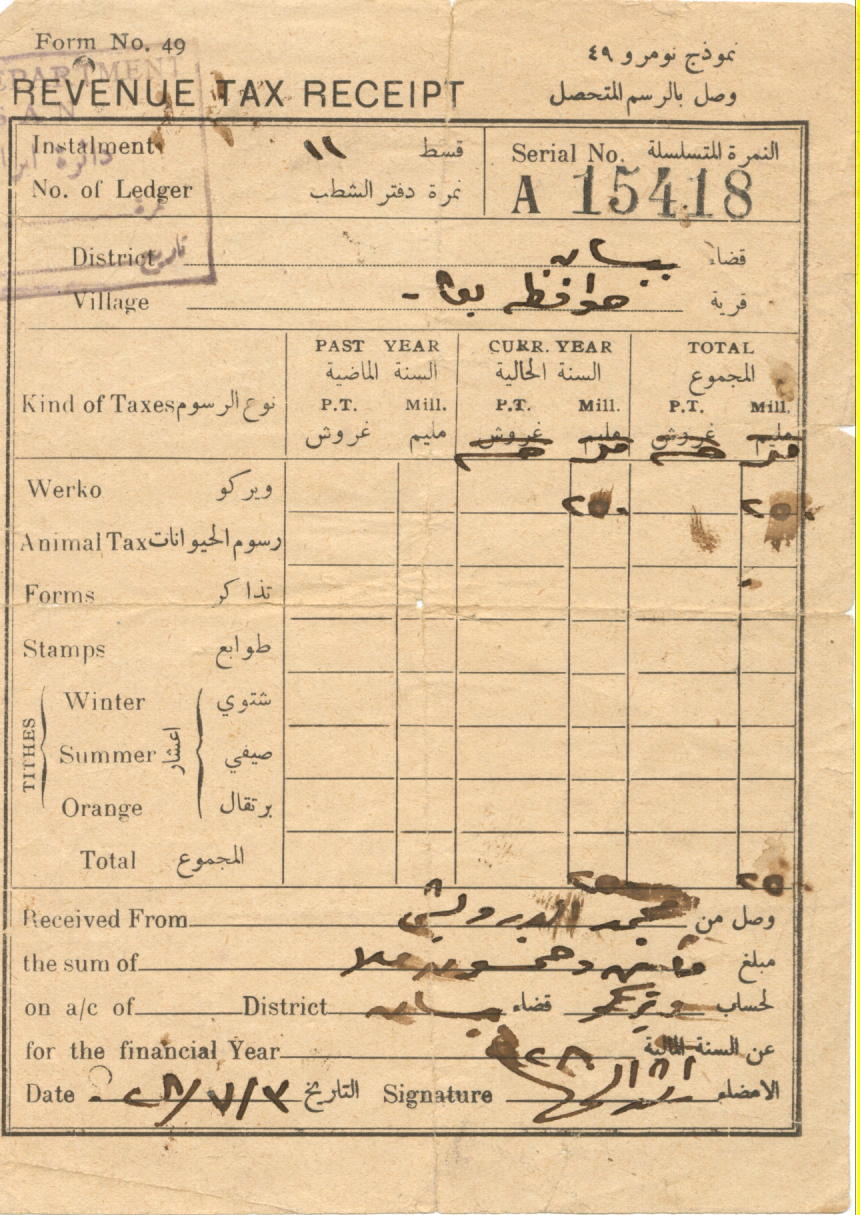 Form No. 49 نموذج نومرو ٤٩
REVENUE TAX RECEIPT وصل بالرسم المتحصل
DEPARTMENT
دائرة
نمرة
تاريخ
Instalment ١١ قسط
No. of Ledger نمرة دفتر الشطب
Serial No. النمرة المتسلسلة
A 15418
District بيسان قضاء
Village قرية
PAST YEAR CURR. YEAR TOTAL
السنة الماضية السنة الحالية المجموع
Kind of Taxes نوع الرسوم P.T. Mill. P.T. Mill. P.T. Mill.
غروش مليم غروش مليم غروش مليم
Werko ويركو ٢٥٠ ٢٥٠
Animal Tax رسوم الحيوانات
Forms تذاكر
Stamps طوابع
TITHES اعشار
Winter شتوي
Summer صيفي
Orange برتقال
Total المجموع ٢٥٠ ٢٥٠
Received From محمد الدرويش وصل من
the sum of مبلغ
on a/c of District بيسان قضاء ويركو لحساب
for the financial Year ٩٢٨ عن السنة المالية
Date التاريخ Signature الامضاء